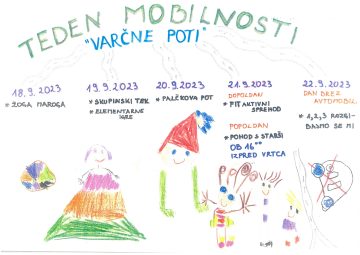 TEDEN MOBILNOSTI
"VARČNE POTI"
18.9.2023
* ŽOGA NAROGA
19.9.2023
* SKUPINSKI TEK
* ELEMENTARNE
IGRE
20.9.2023
* PALČKOVA POT
21.9.2023
DOPOLDAN
* FIT AKTIVNI
SPREHOD
POPOLDAN
* POHOD S STARŠI
OB 16⁰⁰
IZPRED VRTCA
22.9.2023
DAN BREZ
AVTOMOBILA
* 1,2,3 ROZGI-
BAJMO SE MI